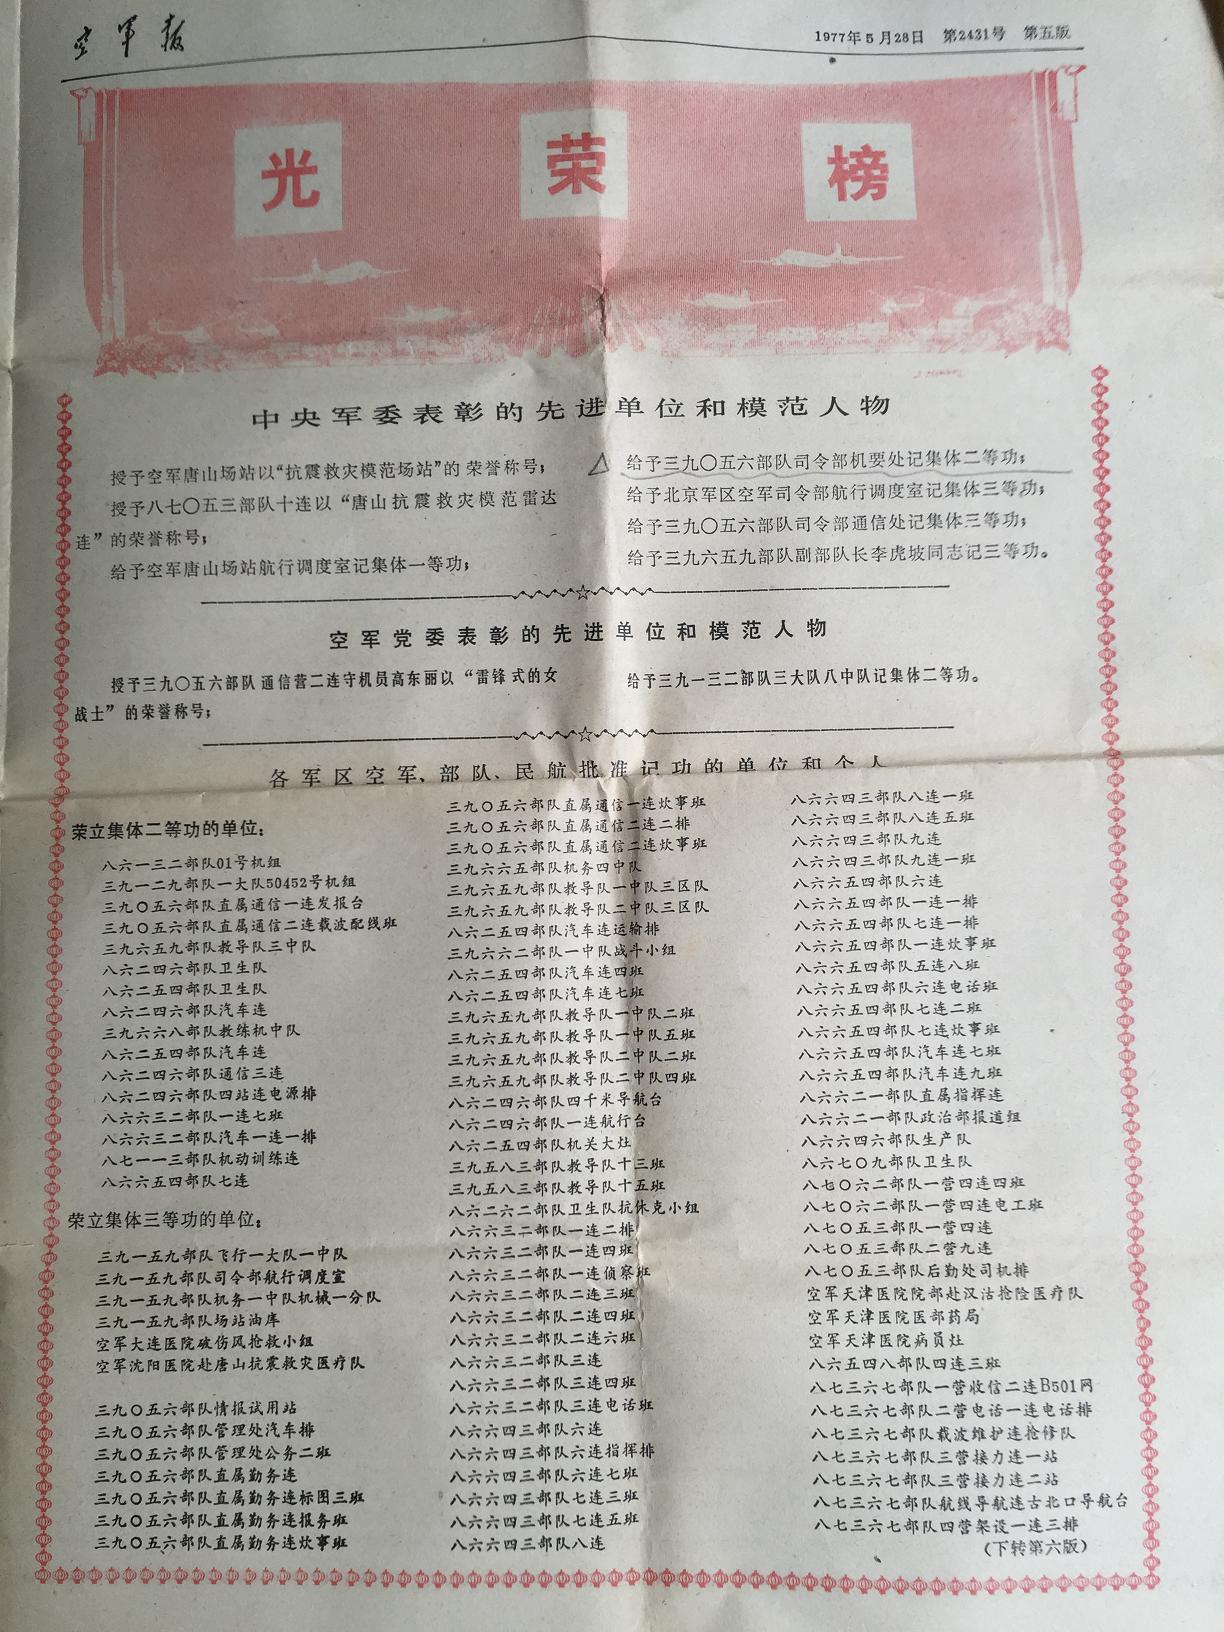 空军报
1977年5月28日 第2431号 第五版
光荣榜
中央军委表彰的先进单位和模范人物
授予空军唐山场站以“抗震救灾模范场站”的荣誉称号;
授予八七〇五三部队十连以“唐山抗震救灾模范雷达
连”的荣誉称号;
给予空军唐山场站航行调度室记集体一等功;
给予三九〇五六部队司令部机要处记集体二等功;
给予北京军区空军司令部航行调度室记集体三等功;
给予三九〇五六部队司令部通信处记集体三等功;
给予三九六五九部队副部队长李虎坡同志记三等功。
空军党委表彰的先进单位和模范人物
授予三九〇五六部队通信营二连守机员高东丽以“雷锋式的女
战士”的荣誉称号;
给予三九一三二部队三大队八中队记集体二等功。
各军区空军、部队、民航批准记功的单位和个人
荣立集体二等功的单位:
八六一三二部队01号机组
三九一二九部队一大队50452号机组
三九〇五六部队直属通信一连发报台
三九〇五六部队直属通信二连载波配线班
三九六五九部队教导队三中队
八六二四六部队卫生队
八六二五四部队卫生队
八六二四六部队汽车连
三九六六八部队教练机中队
八六二五四部队汽车连
八六二四六部队通信三连
八六二四六部队四站连电源排
八六六三二部队一连七班
八六六三二部队汽车一连一排
八七一一三部队机动训练连
八六六五四部队七连
荣立集体三等功的单位:
三九一五九部队飞行一大队一中队
三九一五九部队司令部航行调度室
三九一五九部队机务一中队机械一分队
三九一五九部队场站油库
空军大连医院破伤风抢救小组
空军沈阳医院赴唐山抗震救灾医疗队
三九〇五六部队情报试用站
三九〇五六部队管理处汽车排
三九〇五六部队管理处公务二班
三九〇五六部队直属勤务连
三九〇五六部队直属勤务连标图三班
三九〇五六部队直属勤务连报务班
三九〇五六部队直属勤务连炊事班
三九〇五六部队直属通信一连炊事班
三九〇五六部队直属通信二连二排
三九〇五六部队直属通信二连炊事班
三九六六五部队机务四中队
三九六五九部队教导队一中队三区队
三九六五九部队教导队二中队三区队
八六二五四部队汽车连运输排
三九六六二部队一中队战斗小组
八六二五四部队汽车连四班
八六二五四部队汽车连七班
三九六五九部队教导队一中队二班
三九六五九部队教导队一中队五班
三九六五九部队教导队二中队二班
三九六五九部队教导队二中队四班
八六二四六部队四千米导航台
八六二四六部队一连航行台
八六二五四部队机关大灶
三九五八三部队教导队十三班
三九五八三部队教导队十五班
八六二六二部队卫生队抗休克小组
八六六三二部队一连二排
八六六三二部队一连四班
八六六三二部队一连侦察班
八六六三二部队二连三班
八六六三二部队二连四班
八六六三二部队二连六班
八六六三二部队三连
八六六三二部队三连四班
八六六三二部队三连电话班
八六六四三部队六连
八六六四三部队六连指挥排
八六六四三部队六连七班
八六六四三部队七连三班
八六六四三部队七连五班
八六六四三部队八连
八六六四三部队八连一班
八六六四三部队八连五班
八六六四三部队九连
八六六四三部队九连一班
八六六五四部队六连
八六六五四部队一连一排
八六六五四部队七连一排
八六六五四部队一连炊事班
八六六五四部队五连八班
八六六五四部队六连电话班
八六六五四部队七连二班
八六六五四部队七连炊事班
八六六五四部队汽车连七班
八六六五四部队汽车连九班
八六六二一部队直属指挥连
八六六二一部队政治部报道组
八六六四六部队生产队
八六七〇九部队卫生队
八七〇六二部队一营四连四班
八七〇六二部队一营四连电工班
八七〇五三部队一营四连
八七〇五三部队二营九连
八七〇五三部队后勤处司机排
空军天津医院院部赴汉沽抢险医疗队
空军天津医院医部药局
空军天津医院病员灶
八六五四八部队四连三班
八七三六七部队一营收信二连B501网
八七三六七部队二营电话一连电话排
八七三六七部队载波维护连抢修队
八七三六七部队三营接力连一站
八七三六七部队三营接力连二站
八七三六七部队航线导航连古北口导航台
八七三六七部队四营架设一连三排
(下转第六版)